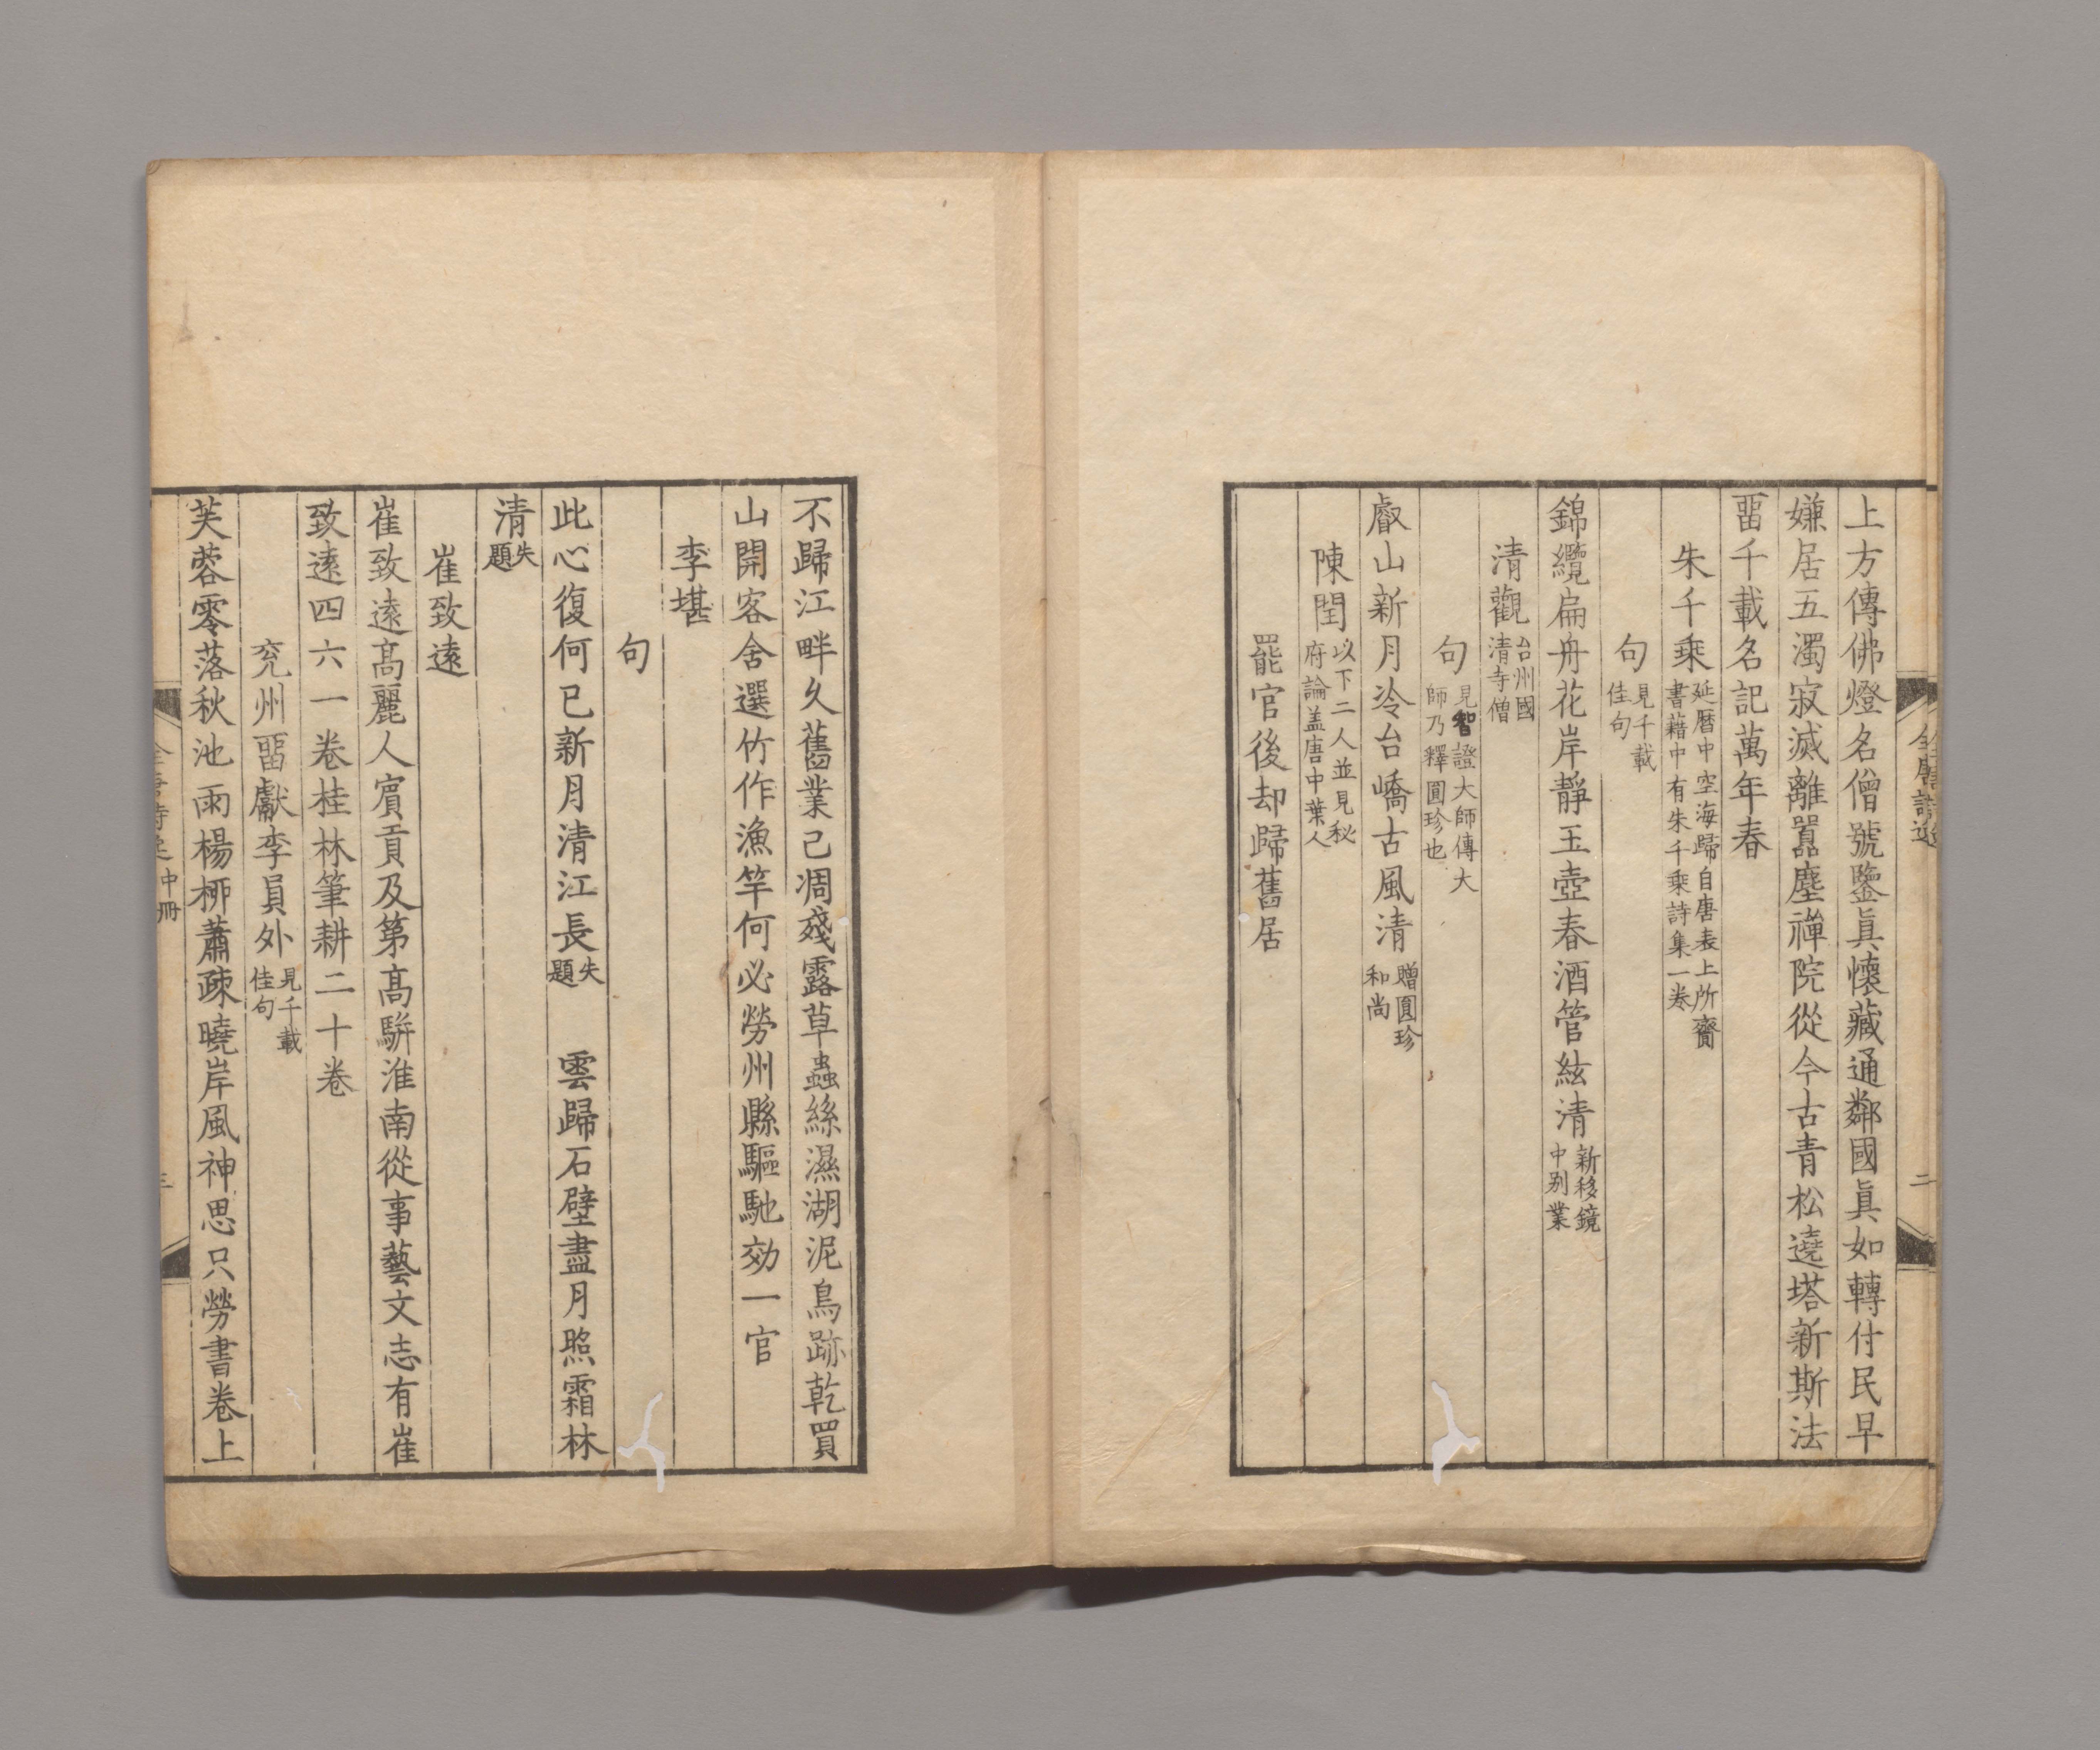 全唐詩逸
二
上方傳佛燈名僧號鑒眞懷藏通鄰國眞如轉付民早
嫌居五濁寂滅離囂塵禅院從今古青松遶塔新斯法
畱千載名記萬年春
朱千乗 延曆中空海歸自唐表上所齎書藉中有朱千乗詩集一卷
句 見千載佳句
錦纜扁舟花岸靜玉壺春酒管絃清 新移鏡中别業
清觀 台州國清寺僧
句 見智證大師傳大師乃釋圓珍也
叡山新月冷台嶠古風清 贈圓珍和尚
陳閏 以下二人並見秘府論盖唐中葉人
罷官後却歸舊居
不歸江畔久舊業已凋殘露草蟲絲濕湖泥鳥跡乾買
山開客舍選竹作漁竿何必勞州縣驅馳効一官
李堪
句
此心復何已新月清江長 失題 雲歸石壁盡月照霜林
清 失題
崔致遠
崔致遠髙麗人賓貢及第髙駢淮南從事藝文志有崔
致遠四六一卷桂林筆耕二十卷
兖州畱獻李員外 見千載佳句
芙蓉零落秋池雨楊柳蕭疎曉岸風神思只勞書卷上
全唐詩逸 中冊
三